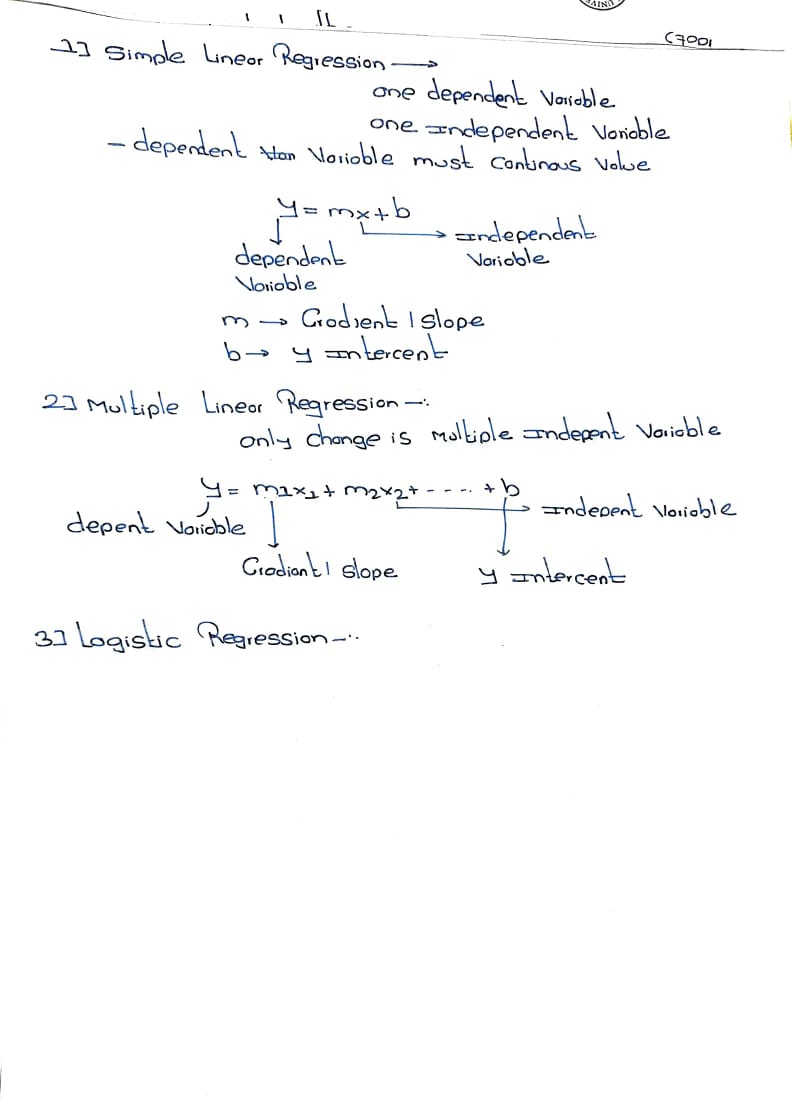 C7001
1] Simple Linear Regression →
one dependent Variable
one Independent Variable
- dependent Variable must Continous Value
y = mx + b
→ Independent
Variable
dependent
Variable
m → Gradient | slope
b → y Intercent
2] Multiple Linear Regression -:
only change is Multiple Indepent Variable
y = m1x1 + m2x2 + ---- + b
→ Indepent Variable
depent Variable
Gradiant | slope
y Intercent
3] Logistic Regression -: